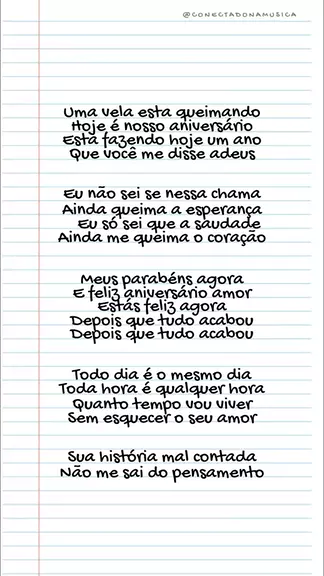 @CONECTADONAMUSICA
Uma vela esta queimando
Hoje é nosso aniversário
Está fazendo hoje um ano
Que você me disse adeus
Eu não sei se nessa chama
Ainda queima a esperança
Eu só sei que a saudade
Ainda me queima o coração
Meus parabéns agora
E feliz aniversário amor
Estás feliz agora
Depois que tudo acabou
Depois que tudo acabou
Todo dia é o mesmo dia
Toda hora é qualquer hora
Quanto tempo vou viver
Sem esquecer o seu amor
Sua história mal contada
Não me sai do pensamento